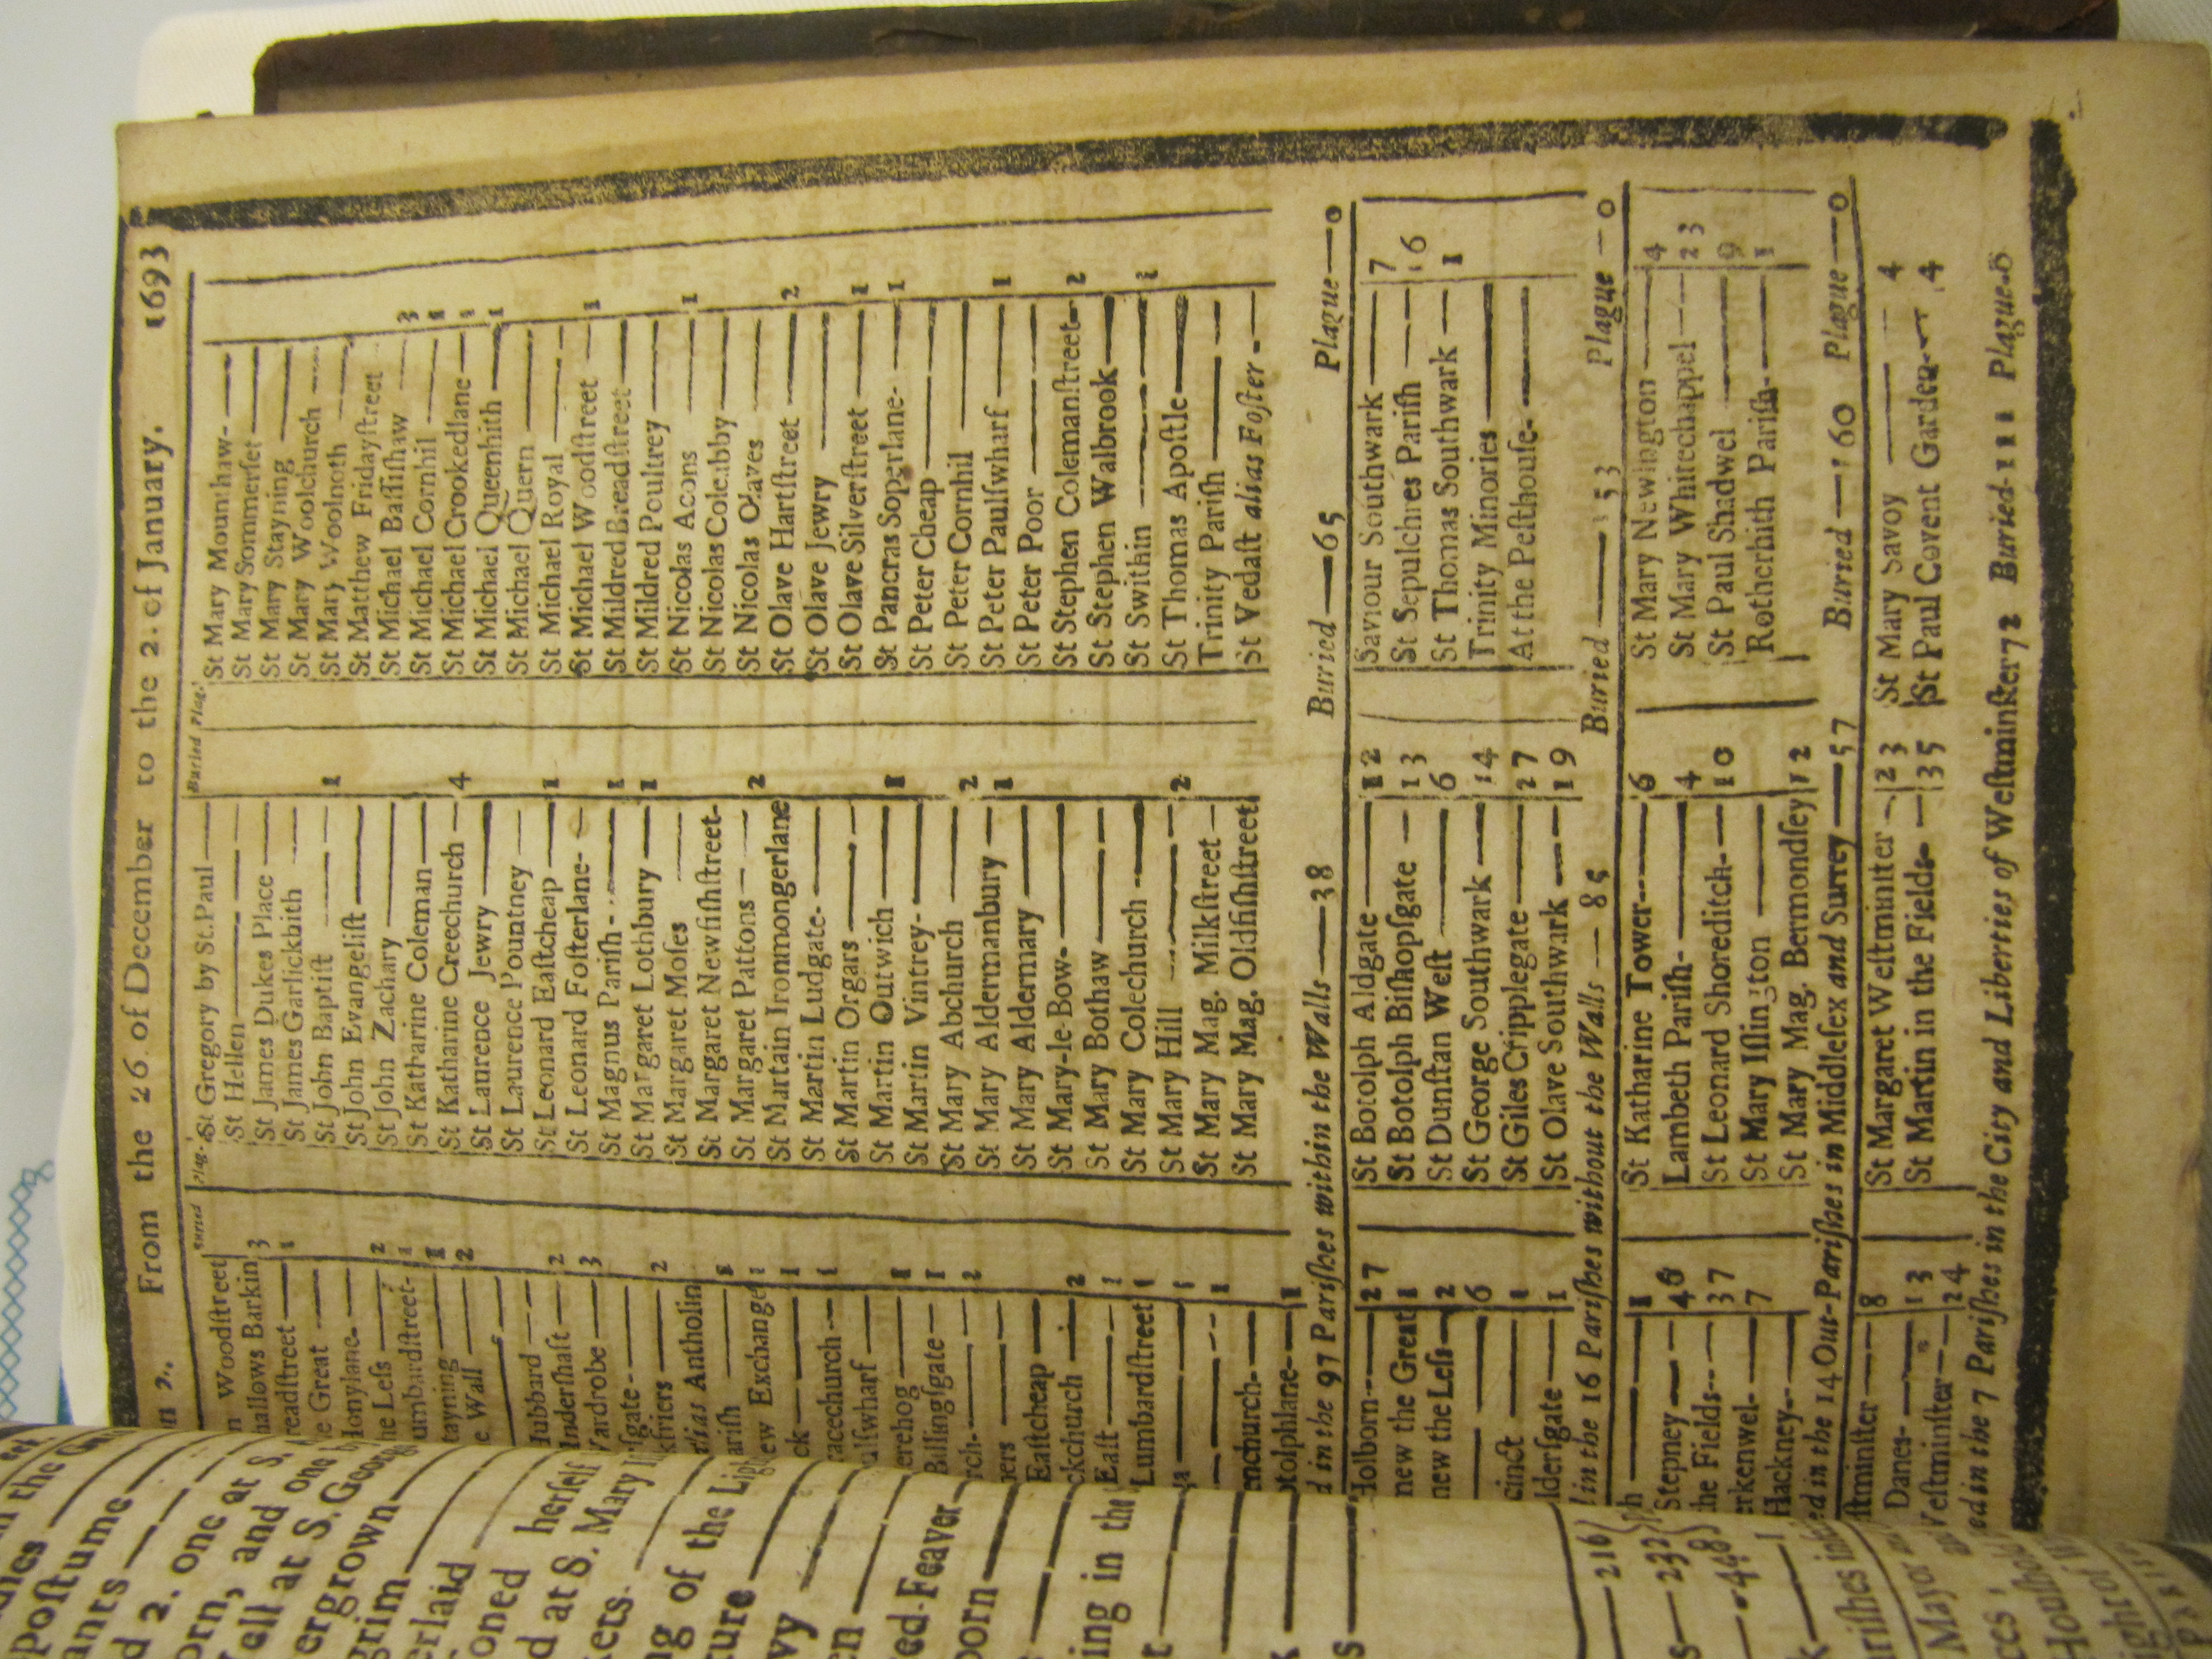 From the 26. of December to the 2. of January. 1693
Buried Plag.
Woodſtreet
hallows Barkin 3
readſtreet — 1
e Great —
Honylane- —
he Leſs — 2
umbardſtreet- 1
tayning — 1
e Wall — 2
Hubbard —
Inderſhaft — 2
Vardrobe — 3
kfriers — 2
alias Antholin
ariſh — 1
ew Exchange 1
ck — 1
racechurch -- 1
ulſwharf —
erehog — 1
Billingſgate — 1
rch- — 2
ners —
Eaſtcheap —
ckchurch — 2
Eaſt — 1
Lumbardſtreet 1
— 1
— 1
enchurch- —
otolphlane- — 1
St Gregory by St. Paul —
St Hellen —
St James Dukes Place —
St James Garlickhith —
St John Baptiſt — 1
St John Evangeliſt —
St John Zachary —
St Katharine Coleman —
St Katharine Creechurch — 4
St Laurence Jewry —
St Laurence Pountney —
St Leonard Eaſtcheap — 1
St Leonard Foſterlane- —
St Magnus Pariſh - — 1
St Margaret Lothbury — 1
St Margaret Moſes —
St Margaret Newfiſhſtreet-
St Margaret Pattons — 2
St Martain Ironmongerlane
St Martin Ludgate- —
St Martin Orgars —
St Martin Outwich — 1
St Martin Vintrey- —
St Mary Abchurch — 2
St Mary Aldermanbury — 1
St Mary Aldermary —
St Mary-le-Bow- —
St Mary Bothaw —
St Mary Colechurch —
St Mary Hill — 2
St Mary Mag. Milkſtreet —
St Mary Mag. Oldfiſhſtreet
St Mary Mounthaw- —
St Mary Sommerſet —
St Mary Stayning —
St Mary Woolchurch —
St Mary Woolnoth —
St Matthew Fridayſtreet
St Michael Baſſiſhaw — 3
St Michael Cornhil — 1
St Michael Crookedlane — 1
St Michael Queenhith — 1
St Michael Quern —
St Michael Royal —
St Michael Woodſtreet — 1
St Mildred Breadſtreet —
St Mildred Poultrey —
St Nicolas Acons — 1
St Nicolas Coleabby —
St Nicolas Olaves —
St Olave Hartſtreet — 2
St Olave Jewry —
St Olave Silverſtreet — 1
St Pancras Soperlane- — 1
St Peter Cheap —
St Peter Cornhil —
St Peter Paulſwharf — 1
St Peter Poor —
St Stephen Colemanſtreet- 2
St Stephen Walbrook —
St Swithin — 1
St Thomas Apoſtle —
Trinity Pariſh —
St Vedaſt alias Foſter - —
d in the 97 Pariſhes within the Walls — 38 Buried — 65 Plague — 0
Holborn — 27
new the Great 1
new the Leſs — 2
— 6
cinct — 1
lderſgate — 1
St Botolph Aldgate — 12
St Botolph Biſhopſgate — 13
St Dunſtan Weſt — 6
St George Southwark — 14
St Giles Cripplegate — 27
St Olave Southwark — 19
Saviour Southwark — 7
St Sepulchres Pariſh — 16
St Thomas Southwark — 1
Trinity Minories —
At the Peſthouſe- —
in the 16 Pariſhes without the Walls — 85 Buried — 153 Plague — 0
ph — 1
Stepney — 46
the Fields-- 37
erkenwel- — 7
Hackney- —
St Katharine Tower — 6
Lambeth Pariſh- — 4
St Leonard Shoreditch- — 10
St Mary Iſlington —
St Mary Mag. Bermondſey 12
St Mary Newington — 4
St Mary Whitechappel — 23
St Paul Shadwel — 9
Rotherhith Pariſh- — 1
ed in the 14 Out-Pariſhes in Middleſex and Surrey — 57 Buried — 160 Plague — 0
ſtminſter — 8
Danes- — 13
Weſtminſter — 24
St Margaret Weſtminſter — 23
St Martin in the Fields — 35
St Mary Savoy — 4
St Paul Covent Garden — 4
ed in the 7 Pariſhes in the City and Liberties of Weſtminſter 72 Buried-111 Plague-0
n the
poſtume
ants
d 2. one at S.
orn, and one
ell at S. Georg
ergrown
grim
erlaid
oned herſelf
d at S. Mary
kets.
ng of the Lig
ture
vy
en
ed-Feaver
orn
ing in the
— 216
— 232
— 448
ariſhes
Mayor